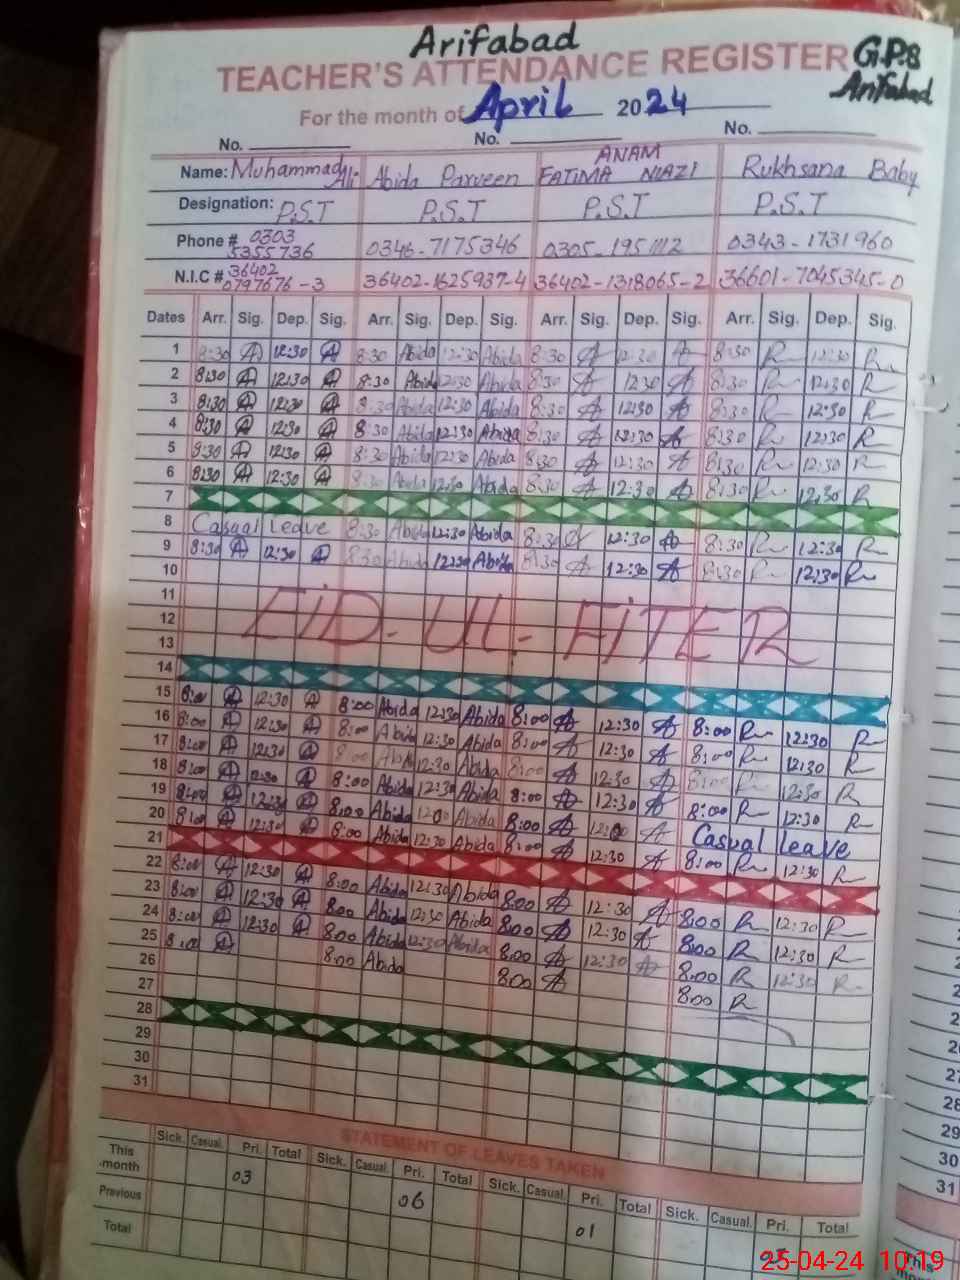 Arifabad
TEACHER'S ATTENDANCE REGISTER G.P.S
Arifabad
For the month of April 2024
No. No. No.
Name: Muhammad Ali Abida Parveen ANAM FATIMA NIAZI Rukhsana Baby
Designation: P.S.T P.S.T P.S.T P.S.T
Phone # 0303 5355736 0346-7175346 0305-1951112 0343-1731960
N.I.C # 36402 0797676-3 36402-1625937-4 36402-1318065-2 36601-7045345-0
Dates Arr. Sig. Dep. Sig. Arr. Sig. Dep. Sig. Arr. Sig. Dep. Sig. Arr. Sig. Dep. Sig.
1 8:30 A 12:30 A 8:30 Abida 12:30 Abida 8:30 A 12:30 A 8:30 R 12:30 R
2 8:30 A 12:30 A 8:30 Abida 12:30 Abida 8:30 A 12:30 A 8:30 R 12:30 R
3 8:30 A 12:30 A 8:30 Abida 12:30 Abida 8:30 A 12:30 A 8:30 R 12:30 R
4 8:30 A 12:30 A 8:30 Abida 12:30 Abida 8:30 A 12:30 A 8:30 R 12:30 R
5 8:30 A 12:30 A 8:30 Abida 12:30 Abida 8:30 A 12:30 A 8:30 R 12:30 R
6 8:30 A 12:30 A 8:30 Abida 12:30 Abida 8:30 A 12:30 A 8:30 R 12:30 R
7
8 Casual Leave 8:30 Abida 12:30 Abida 8:30 A 12:30 A 8:30 R 12:30 R
9 8:30 A 12:30 A 8:30 Abida 12:30 Abida 8:30 A 12:30 A 8:30 R 12:30 R
10
11
12 EID-UL-FITER
13
14
15 8:00 A 12:30 A 8:00 Abida 12:30 Abida 8:00 A 12:30 A 8:00 R 12:30 R
16 8:00 A 12:30 A 8:00 Abida 12:30 Abida 8:00 A 12:30 A 8:00 R 12:30 R
17 8:00 A 12:30 A 8:00 Abida 12:30 Abida 8:00 A 12:30 A 8:00 R 12:30 R
18 8:00 A 12:30 A 8:00 Abida 12:30 Abida 8:00 A 12:30 A 8:00 R 12:30 R
19 8:00 A 12:30 A 8:00 Abida 12:00 Abida 8:00 A 12:00 A Casual Leave
20 8:00 A 12:30 A 8:00 Abida 12:30 Abida 8:00 A 12:30 A 8:00 R 12:30 R
21
22 8:00 A 12:30 A 8:00 Abida 12:30 Abida 8:00 A 12:30 A 8:00 R 12:30 R
23 8:00 A 12:30 A 8:00 Abida 12:30 Abida 8:00 A 12:30 A 8:00 R 12:30 R
24 8:00 A 12:30 A 8:00 Abida 12:30 Abida 8:00 A 12:30 A 8:00 R 12:30 R
25 8:00 A 8:00 Abida 8:00 A 8:00 R
26
27
28
29
30
31
STATEMENT OF LEAVES TAKEN
Sick. Casual. Pri. Total Sick. Casual. Pri. Total Sick. Casual. Pri. Total Sick. Casual. Pri. Total
This month 03 06 01
Previous
Total
25-04-24 10:19